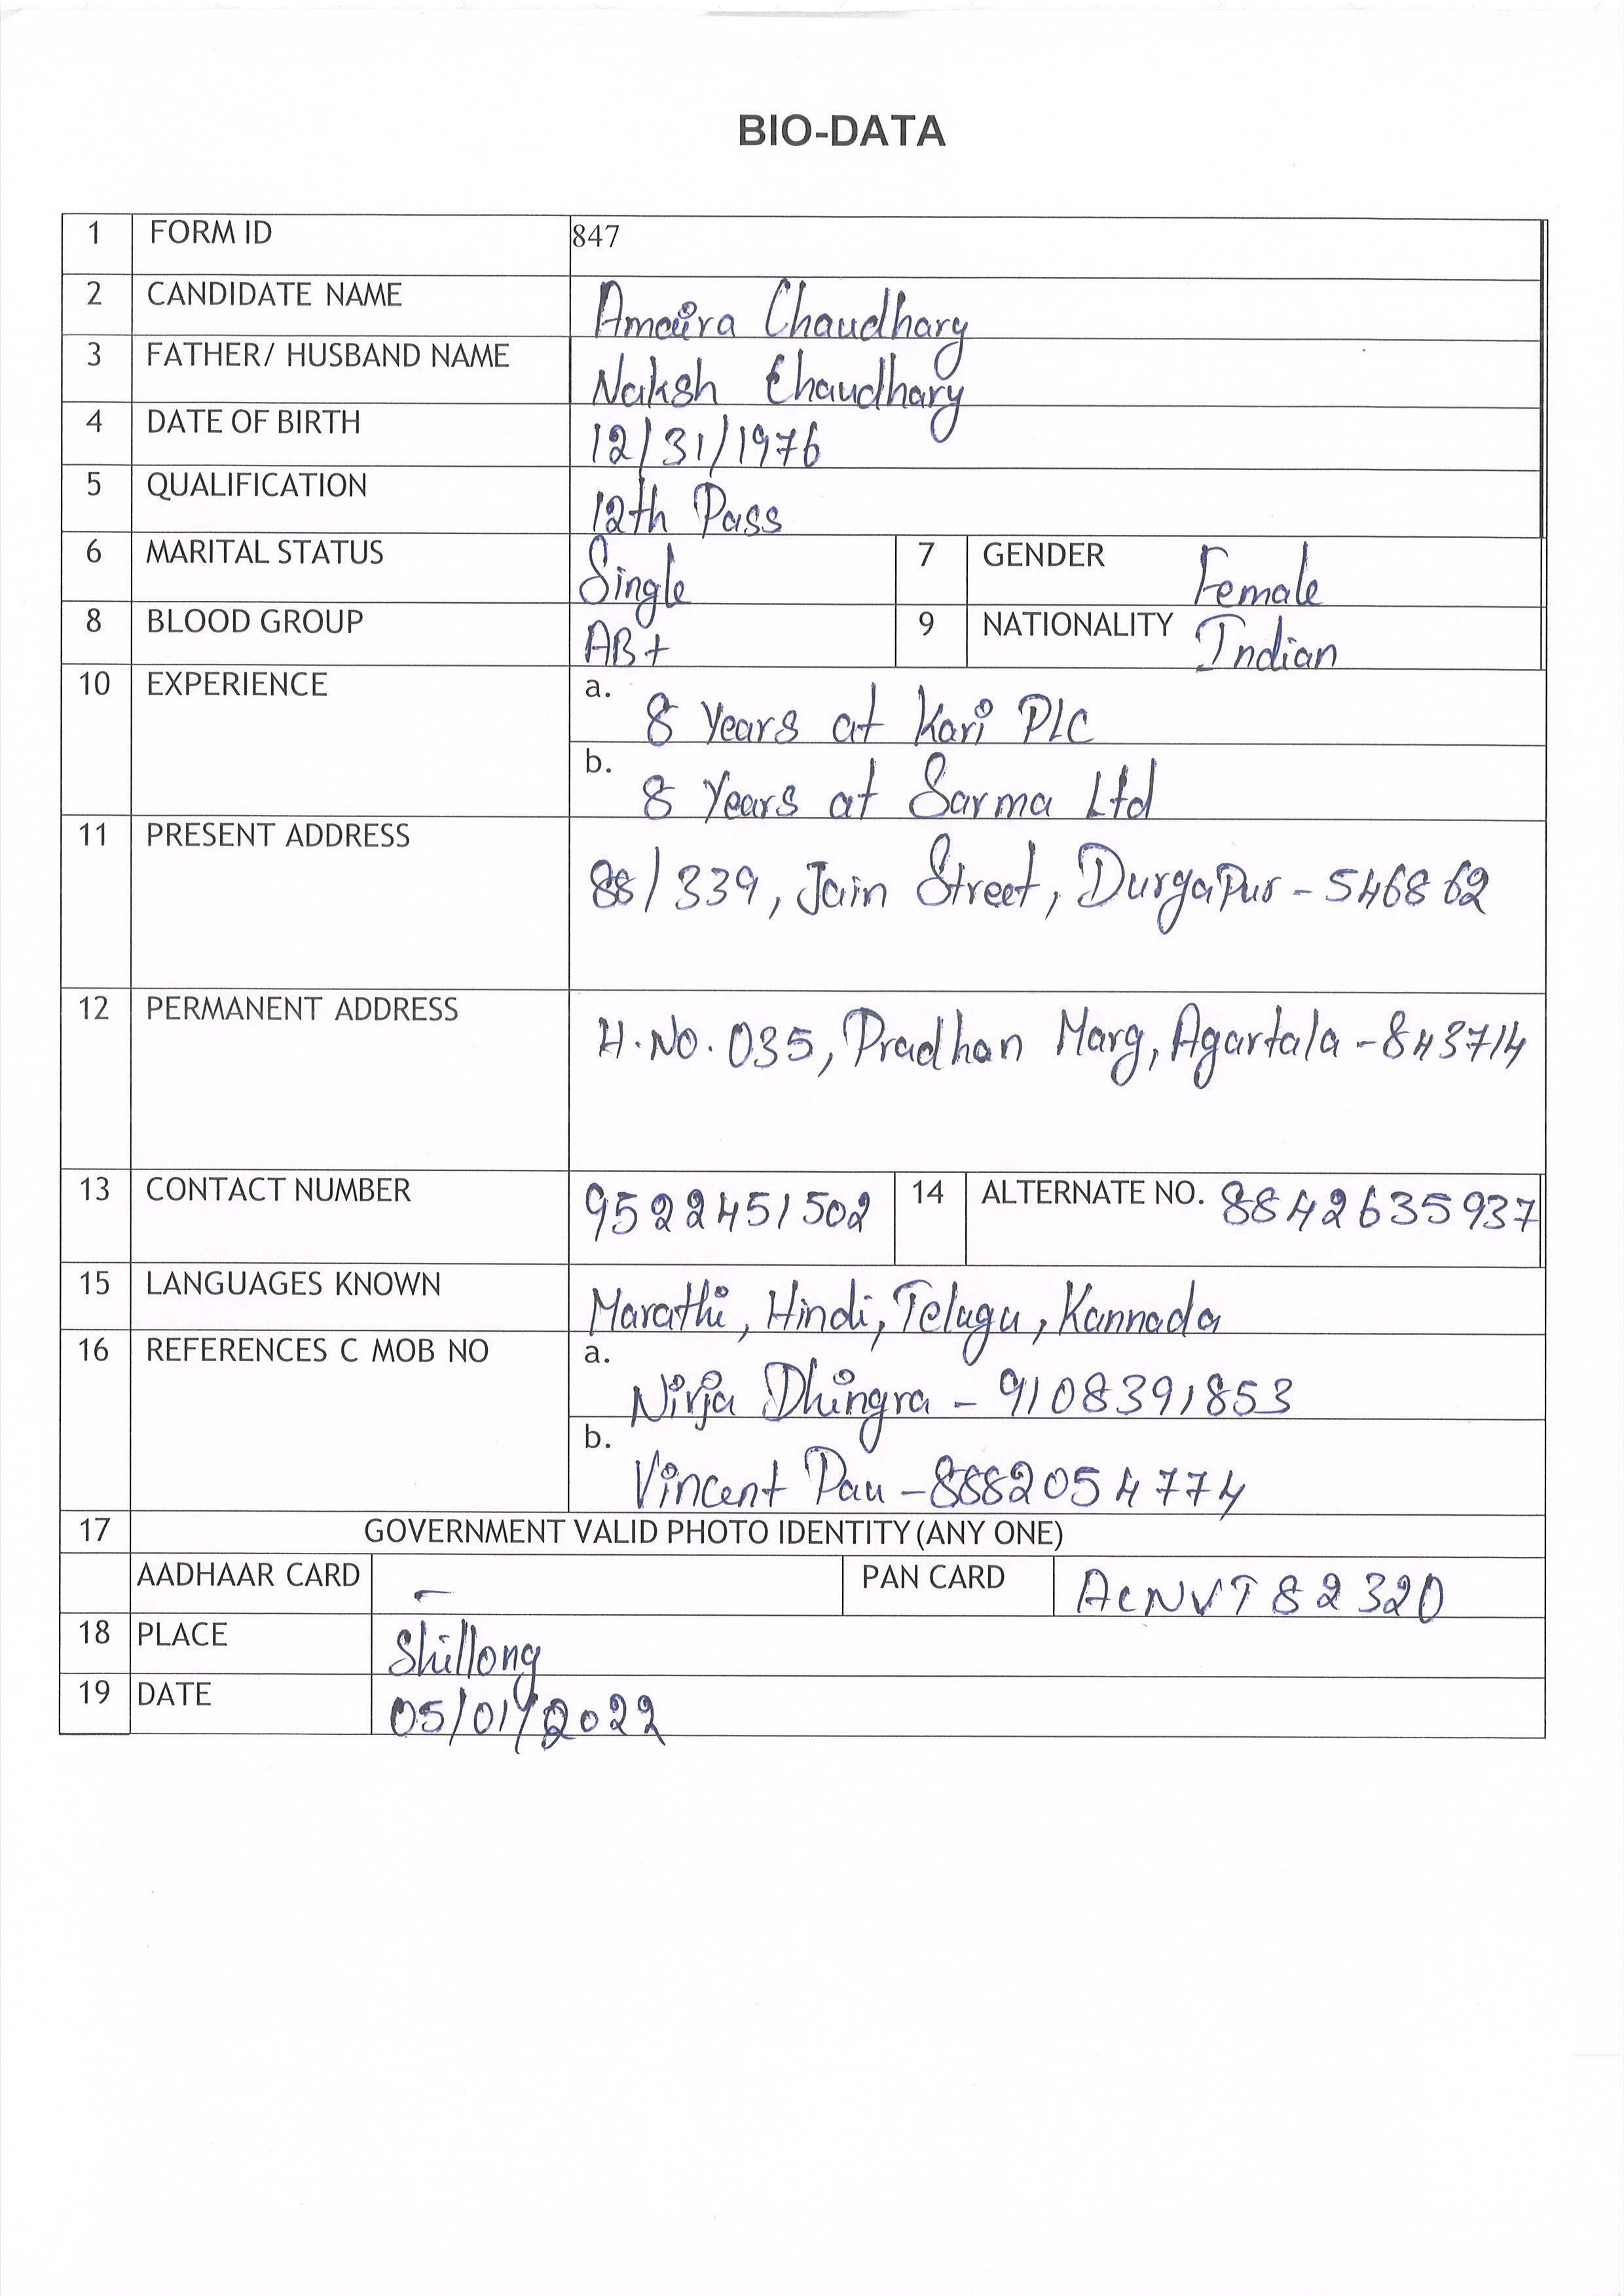 BIO-DATA
1 FORM ID 847
2 CANDIDATE NAME Amaira Chaudhary
3 FATHER/ HUSBAND NAME Naksh Chaudhary
4 DATE OF BIRTH 12/31/1976
5 QUALIFICATION 12th Pass
6 MARITAL STATUS Single 7 GENDER Female
8 BLOOD GROUP AB+ 9 NATIONALITY Indian
10 EXPERIENCE a. 8 Years at Kari PLC
b. 8 Years at Sarma Ltd
11 PRESENT ADDRESS 88/339, Jain Street, Durgapur - 546862
12 PERMANENT ADDRESS H.No. 035, Pradhan Marg, Agartala - 843714
13 CONTACT NUMBER 9522451502 14 ALTERNATE NO. 8842635937
15 LANGUAGES KNOWN Marathi, Hindi, Telugu, Kannada
16 REFERENCES C MOB NO a. Nirja Dhingra - 9108391853
b. Vincent Pau - 8882054774
17 GOVERNMENT VALID PHOTO IDENTITY (ANY ONE)
AADHAAR CARD - PAN CARD ACNVT82320
18 PLACE Shillong
19 DATE 05/01/2022